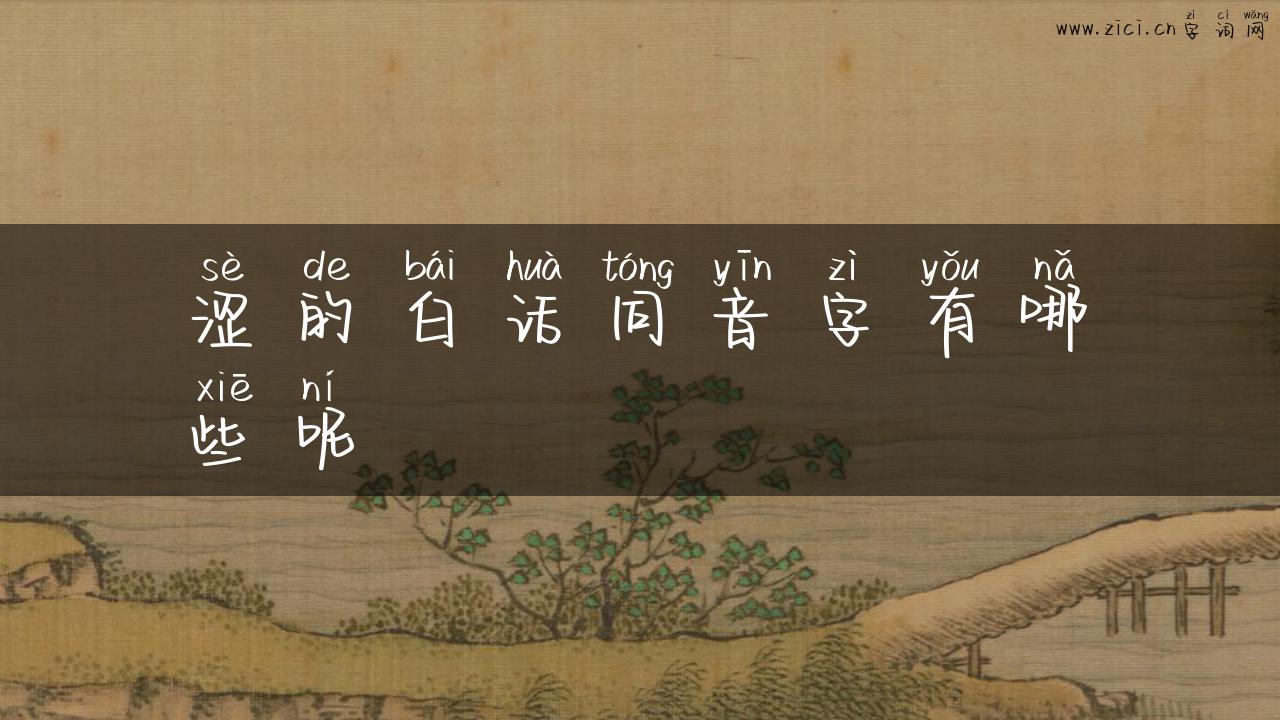 zì cí wǎng
www.zici.cn 字词网
sè de bái huà tóng yīn zì yǒu nǎ
涩的白话同音字有哪
xiē ní
些呢